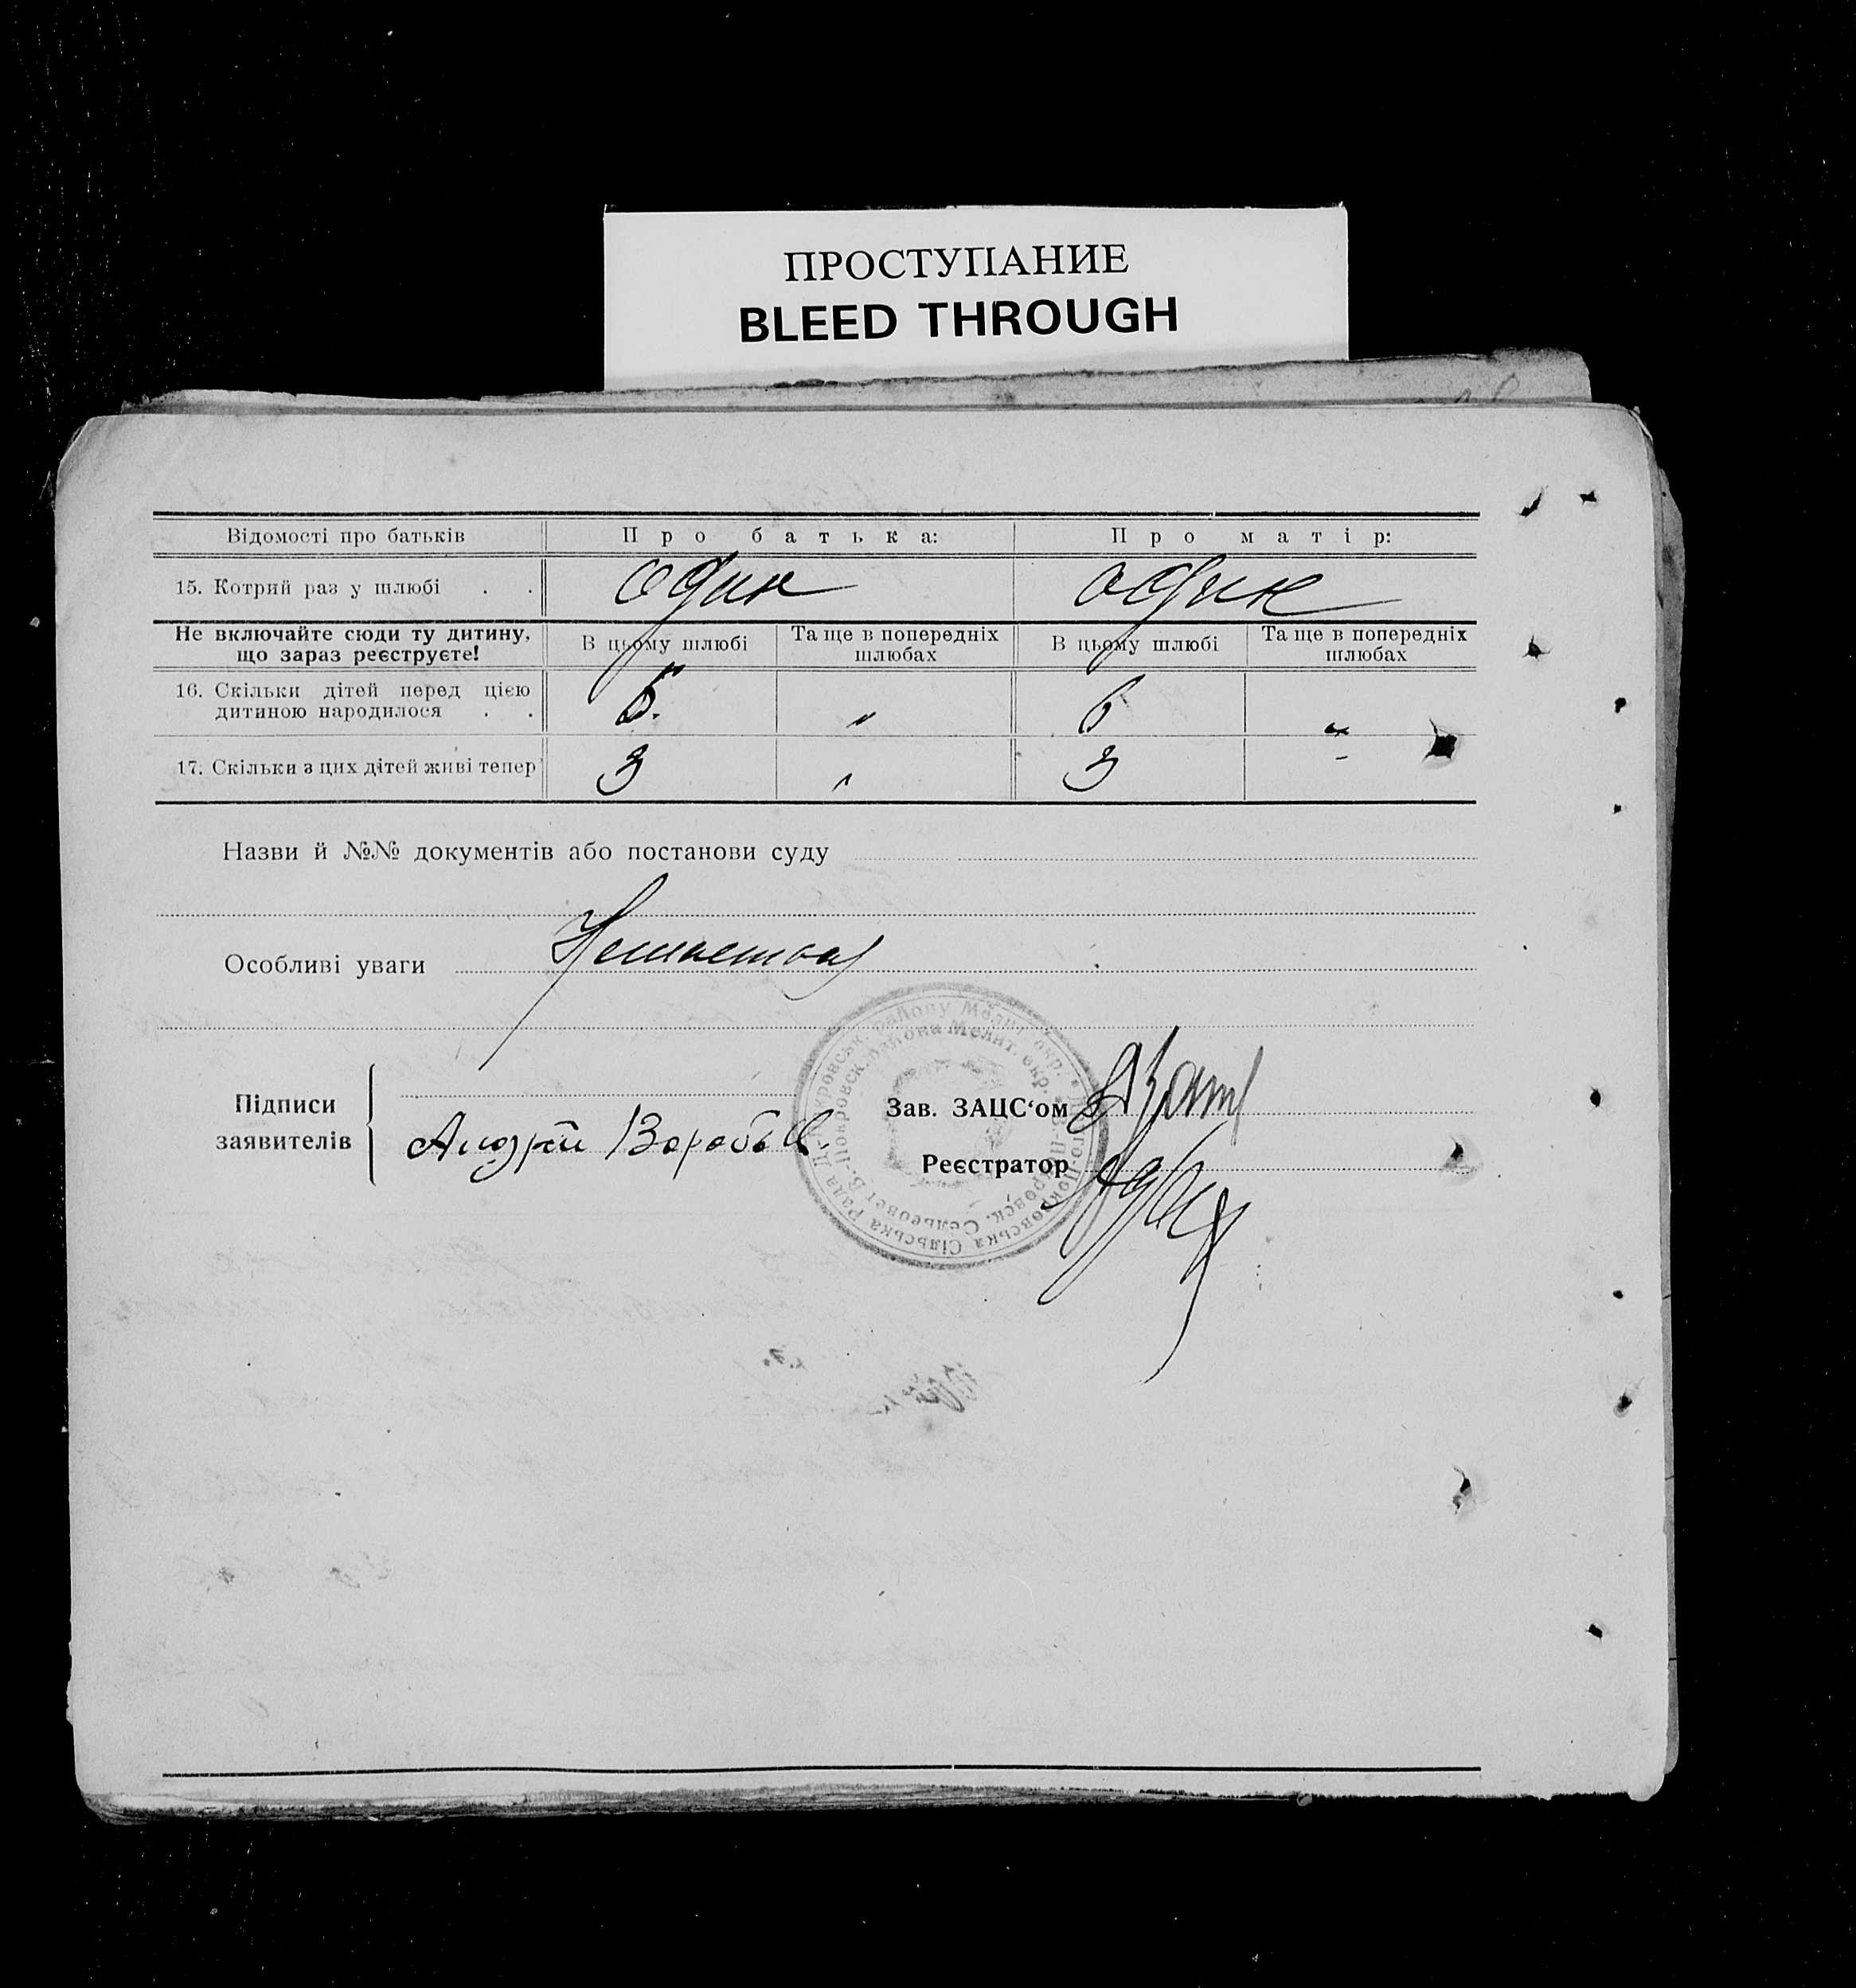 ПРОСТУПАНИЕ
BLEED THROUGH
Відомості про батьків Про батька: Про матір:
15. Котрий раз у шлюбі . . один один
Не включайте сюди ту дитину, що зараз реєструєте! В цьому шлюбі Та ще в попередніх шлюбах В цьому шлюбі Та ще в попередніх шлюбах
16. Скільки дітей перед цією
дитиною народилося . . „ „
17. Скільки з цих дітей живі тепер 3 3
Назви й №№ документів або постанови суду
Особливі уваги
Підписи заявителів
Андрій Воробьев
Зав. ЗАЦС‘ом
Реєстратор
Покровська Сільська Рада Покровськ. Району Меліт. окр.
В.-Покровск. Сельсовет В.-Покровск. района Мелит. окр.